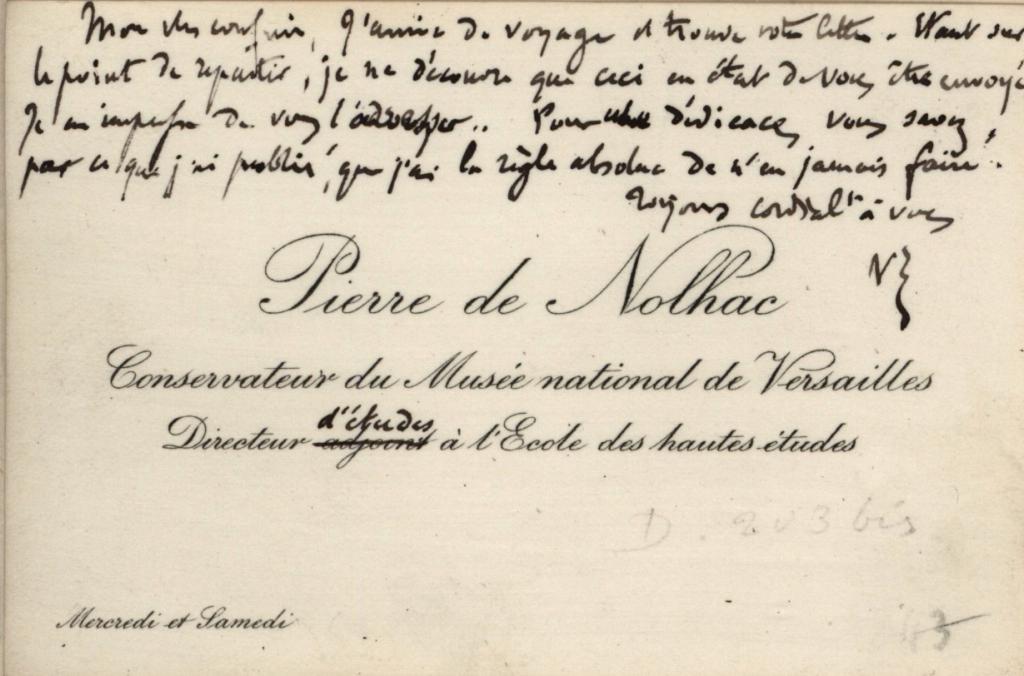 Mon cher confrère, J'arrive de voyage et trouve votre lettre. Étant sur
le point de repartir, je ne découvre que ceci en état de vous être envoyé
Je m'empresse de vous l'adresser.. Pour une dédicace, vous savez,
par ce que j'ai publié, que j'ai la règle absolue de n'en jamais faire.
Toujours cordialt à vous
N
Pierre de Nolhac
Conservateur du Musée national de Versailles
d'études
Directeur adjoint à l'Ecole des hautes études
D. 203 bis
Mercredi et Samedi
43